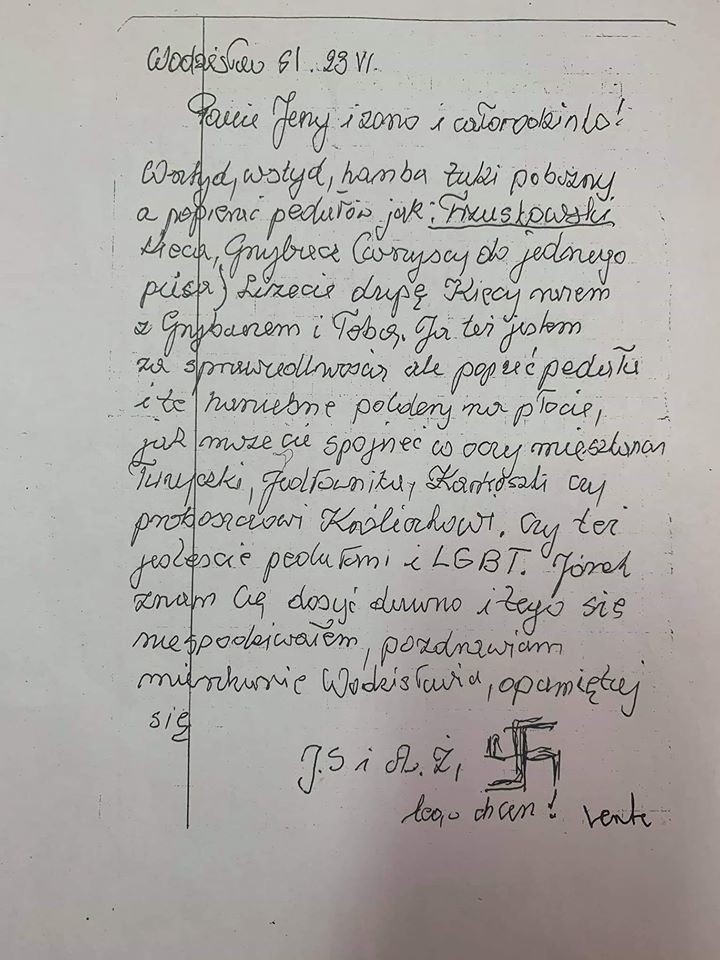 Wodzisław Śl. 23 VI.
Panie Jerzy i żono i całorodzinko!
Wstyd, wstyd, hamba taki pobożny
a popierać pedałów jak: Trzuskowski
Kieca, Grzybiec (wszyscy do jednego
pisa) Liżecie dupę Kięcy razem
z Grzybarzem i Tobą. Ja też jestem
za sprawiedliwością ale poprzeć pedała
i te haniebne poldery na płocie,
jak możecie spojrzeć w oczy mieszkanan
Turyczki, Jedłownika, Karkoszki czy
proboszczowi czy też
jesteście pedałami i LGBT. Jórek
znam Cię dosyć dawno i tego się
niespodziwałem, pozdrawiam
mieszkanie Wodzisławia, opamiętaj
się
J.S i A.Ż,
tego chcesz!